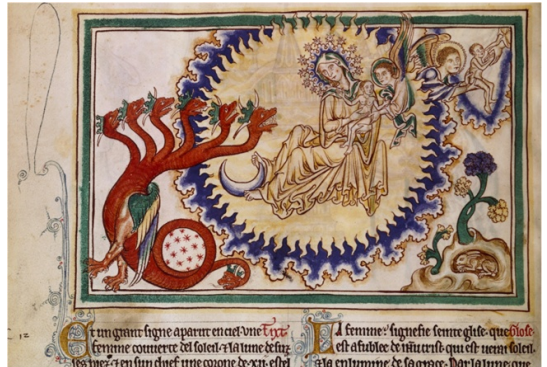 Et un grant signe aparut en ciel vne Tixt
femme couerte del soleil ⁊ la lune desuz
ses piez ⁊ en sun chef une corone de xii. estei
La femme signefie seinte glise que Glose
est afublee de crist qui est uerai soleil
la enlumine de sa grace. Par la lune que